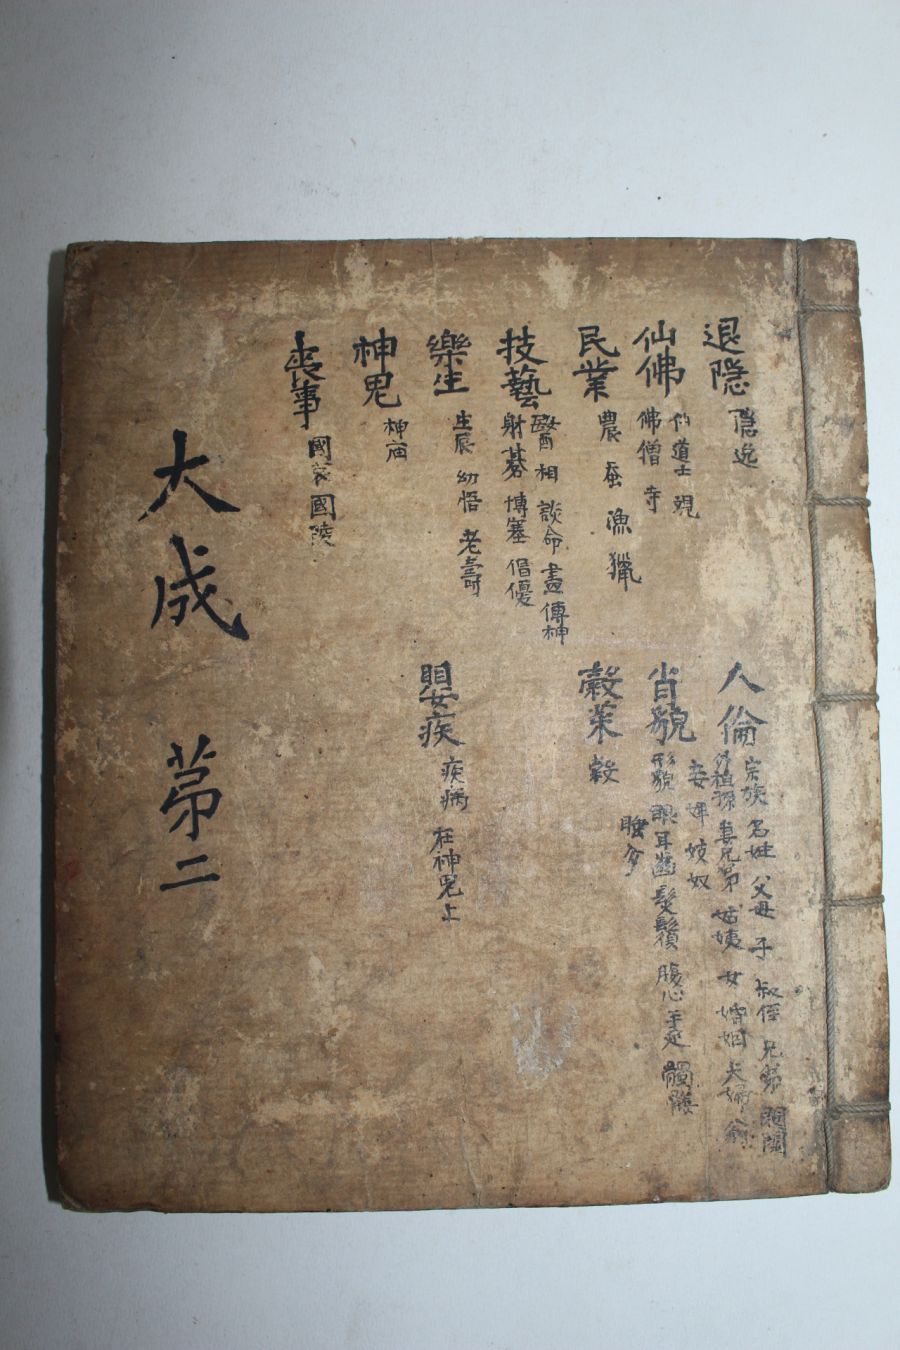 退隐 隱逸
仙佛 仙道士 觋
佛僧 寺
民業 農 蚕 漁 獵
技藝 醫 相 談命 畫 傳神
射碁 博塞 倡優
樂生 生辰 幼悟 老壽
神鬼 神庙
喪事 國喪 國陵
人倫 宗族 名姓 父母 子 叔侄 兄弟 閨閤
外祖孫 妻兄弟 姑姨 女 婿姻 夫婦
妾婢 妓奴
肖貌 形貌 眼耳齒 髮鬚 腹心 手足 髑髏
穀菜 穀
嬰疾 疾病 在神鬼上
大成 苐二